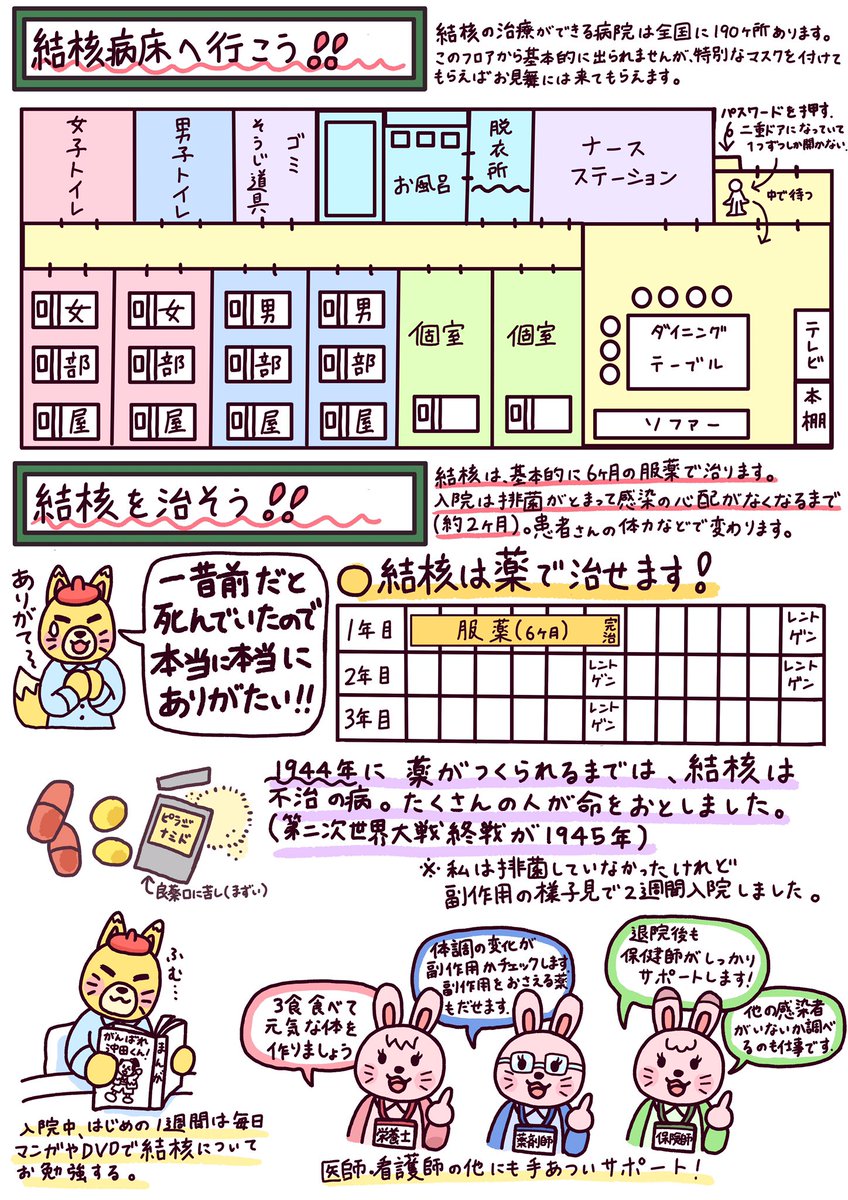 結核病床へ行こう!!
結核の治療ができる病院は全国に190ヶ所あります。
このフロアから基本的に出られませんが、特別なマスクを付けて
もらえばお見舞には来てもらえます。
女子トイレ
男子トイレ
ゴミ
そうじ道具
お風呂
脱衣所
ナース
ステーション
パスワードを押す。
二重ドアになっていて
1つずつしか開かない。
中で待つ
女部屋
女部屋
男部屋
男部屋
個室
個室
ダイニング
テーブル
ソファー
テレビ
本棚
結核を治そう!!
結核は、基本的に6ヶ月の服薬で治ります。
入院は排菌がとまって感染の心配がなくなるまで
(約2ヶ月)。患者さんの体力などで変わります。
ありがて〜
一昔前だと
死んでいたので
本当に本当に
ありがたい!!
●結核は薬で治せます!
1年目
服薬(6ヶ月)
完治
レントゲン
2年目
レントゲン
レントゲン
3年目
レントゲン
1944年に 薬がつくられるまでは、結核は
不治の病。たくさんの人が命をおとしました。
(第二次世界大戦終戦が1945年)
※私は排菌していなかったけれど
副作用の様子見で2週間入院しました。
ピラジ
ナミド
↑良薬口に苦し(まずい)
ふむ…
がんばれ
沖田くん!
まんが
入院中、はじめの1週間は毎日
マンガやDVDで結核について
お勉強する。
3食食べて
元気な体を
作りましょう
体調の変化が
副作用かチェックします。
副作用をおさえる薬
もだせます。
退院後も
保健師がしっかり
サポートします!
他の感染者
がいないか調べ
るのも仕事です。
栄養士
薬剤師
保険師
医師・看護師の他にも手あついサポート!